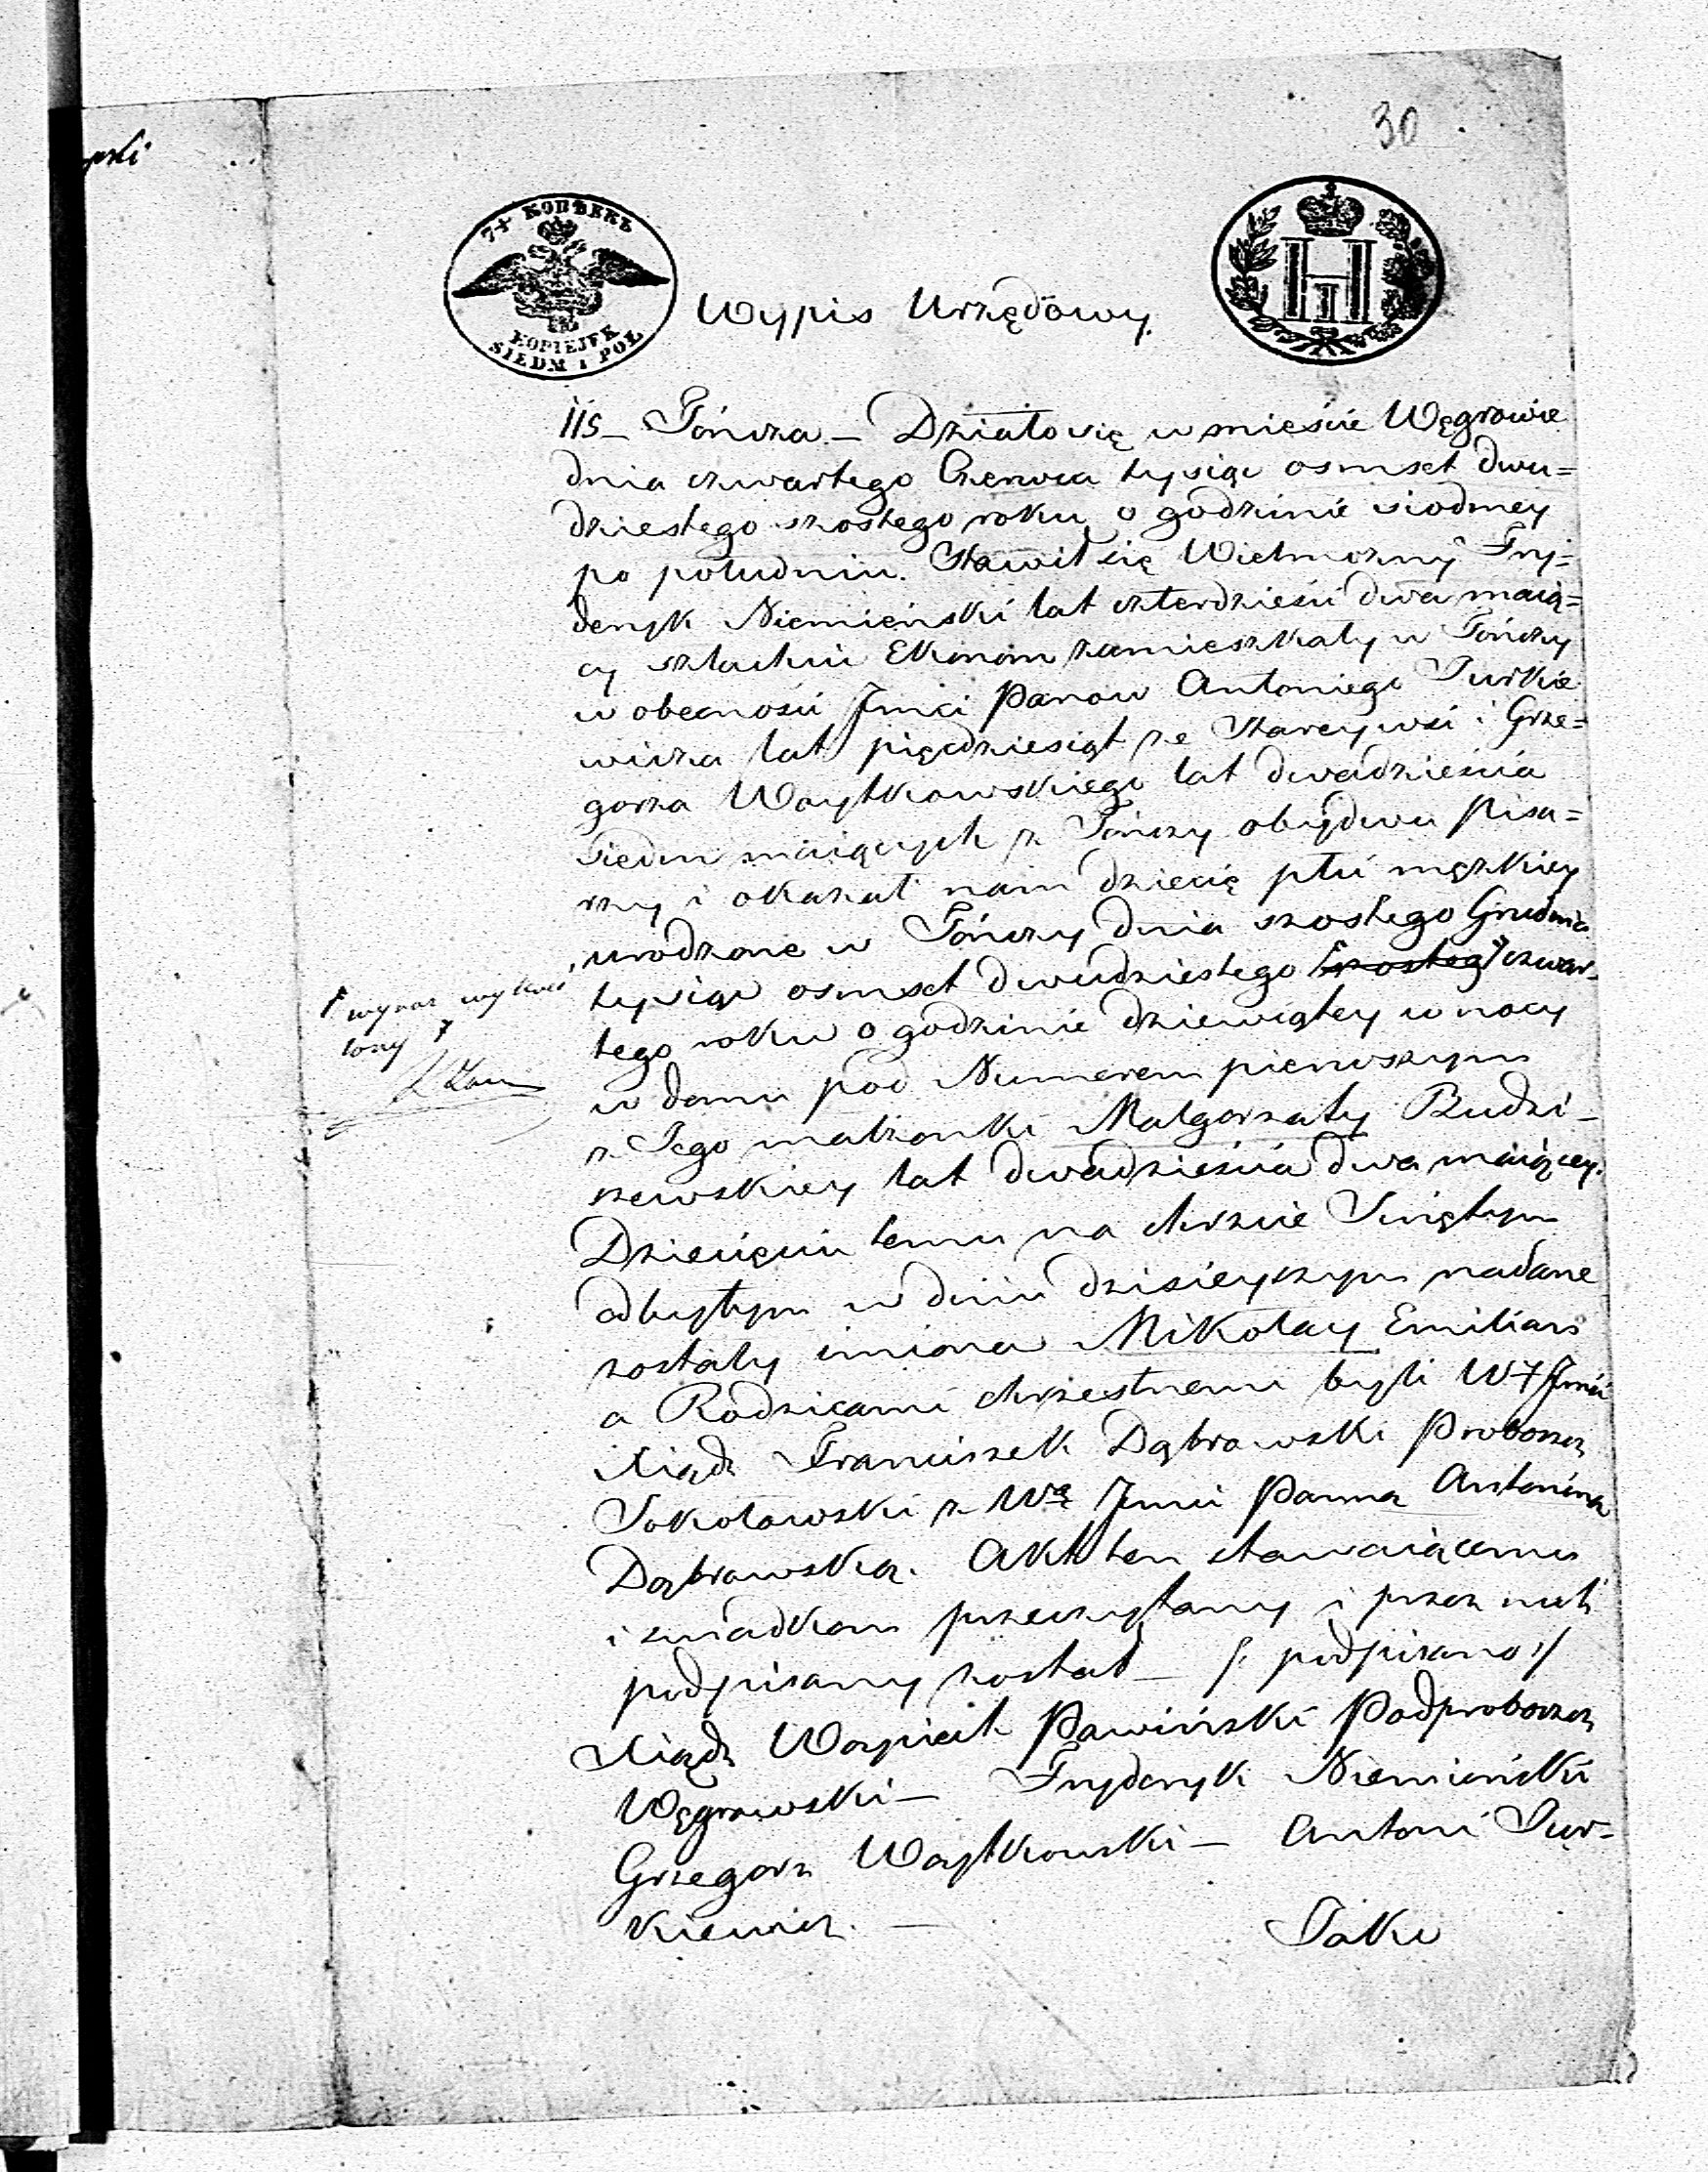 30
pski
7½ КОПѢЕКЪ
KOPIEJEK
SIEDM I POŁ
Wypis Urzędowy.
115 – Tończa. – Działo się w mieście Węgrowie
dnia czwartego Czerwca tysiąc osmset dwu=
dziestego szostego roku o godzinie siodmey
po południu. Stawił się Wielmozny Fry=
deryk Niemieński lat czterdzieści dwa maią=
cy szlachcic Ekonom zamieszkały w Tończy
w obecności Jmci Panow Antoniego Turkie
wicza lat pięćdziesiąt ze Stareywsi i Grze=
gorza Woytkowskiego lat dwadzieścia
siedm maiących z Tończy obydwu Pisa=
rzy i okazał nam dziecię płci męzkiey
urodzone w Tończy dnia szostego Grudnia
tysiąc osmset dwudziestego szostego czwar-
tego roku o godzinie dziewiątey w nocy
w domu pod Numerem pierwszym
z Jego małzonki Małgorzaty Rudzi-
szewskiey lat dwadzieścia dwa maiącey.
Dziecięciu temu na chrzcie Swiętym
odbytym w dniu dzisieyszym nadane
zostały imiona Mikołay Emilian
a Rodzicami chrzestnemi byli W Jmci
Xiądz Franciszek Dąbrowski Proboszcz
Sokołowski z Wą Jmci Panną Antoniną
Dąbrowską. Akt ten stawaiącemu
i swiadkom przeczytany i przez nich
podpisany został – /: podpisano :/
Xiądz Woyciech Pawiński Podproboszcz
Węgrowski – Fryderyk Niemieński
Grzegorz Woytkowski – Antoni Tur=
kiewicz. –
Jako
wyraz wykreś
lony